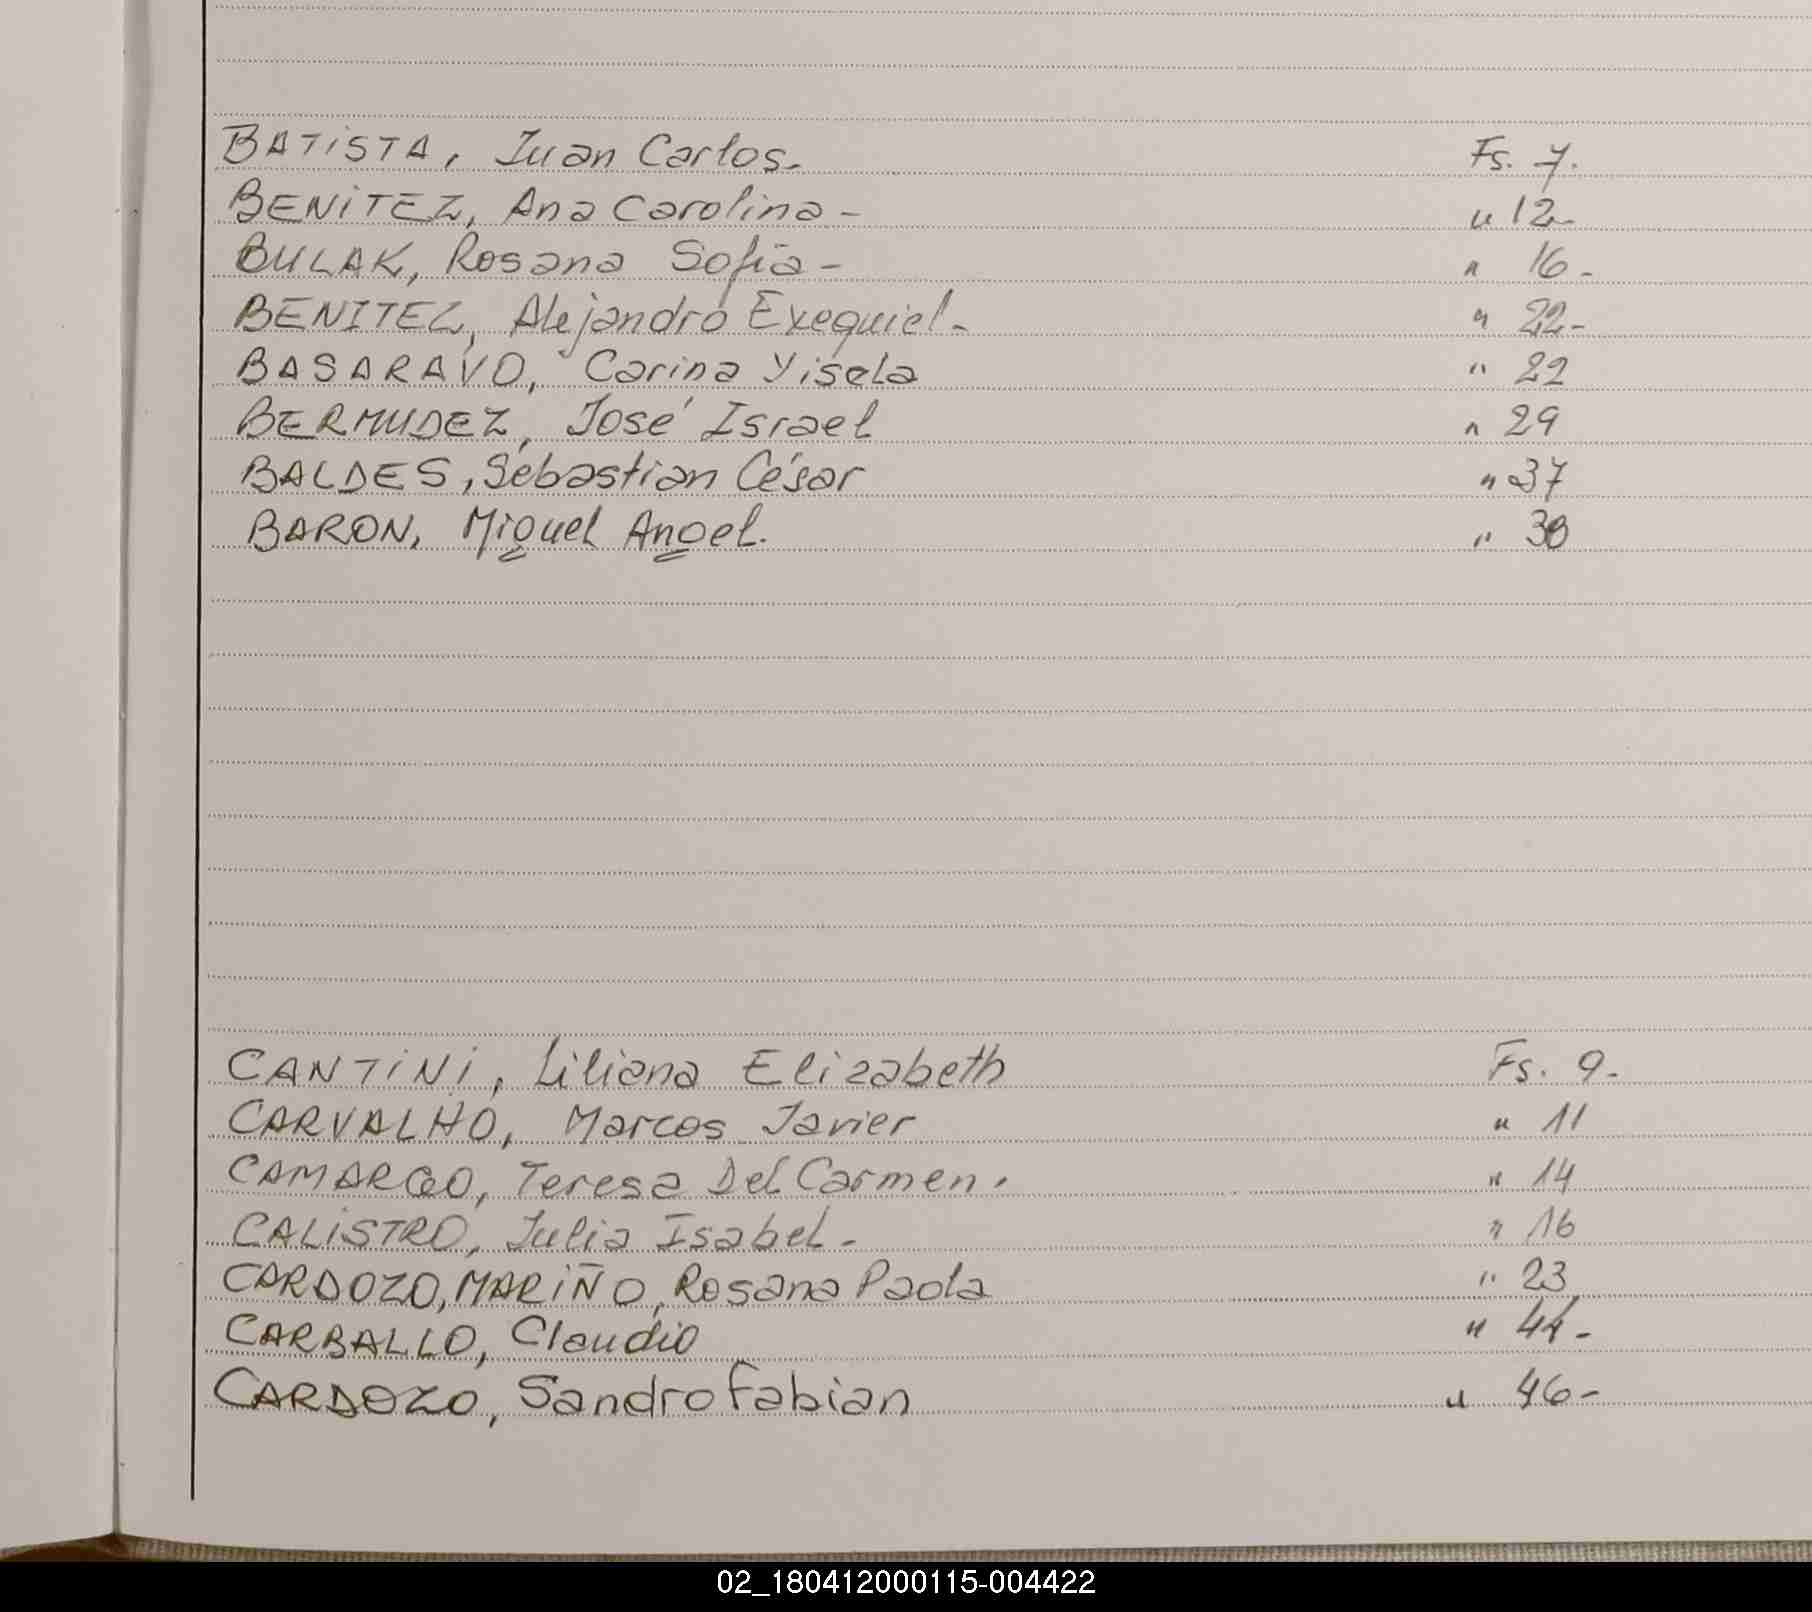 BATiSTA, Juan Carlos. Fs. 7.
BENiTEZ, Ana Carolina - " 12-
BULAK, Rosana Sofia - " 16-
BENITEZ, Alejandro Exequiel - " 22-
BASARAVO, Carina Yisela " 22
BERMUDEZ, José Israel " 29
BALDES, Sebastian César " 37
BARON, Miguel Angel. " 38
CANTiNi, Liliana Elizabeth Fs. 9-
CARVALHO, Marcos Javier " 11
CAMARGO, Teresa Del Carmen. " 14
CALiSTRO, Julia Isabel - " 16
CARDOZO, MARiÑO, Rosana Paola " 23
CARBALLO, Claudio " 44-
CARDOZO, Sandro Fabian " 46-
02_180412000115-004422